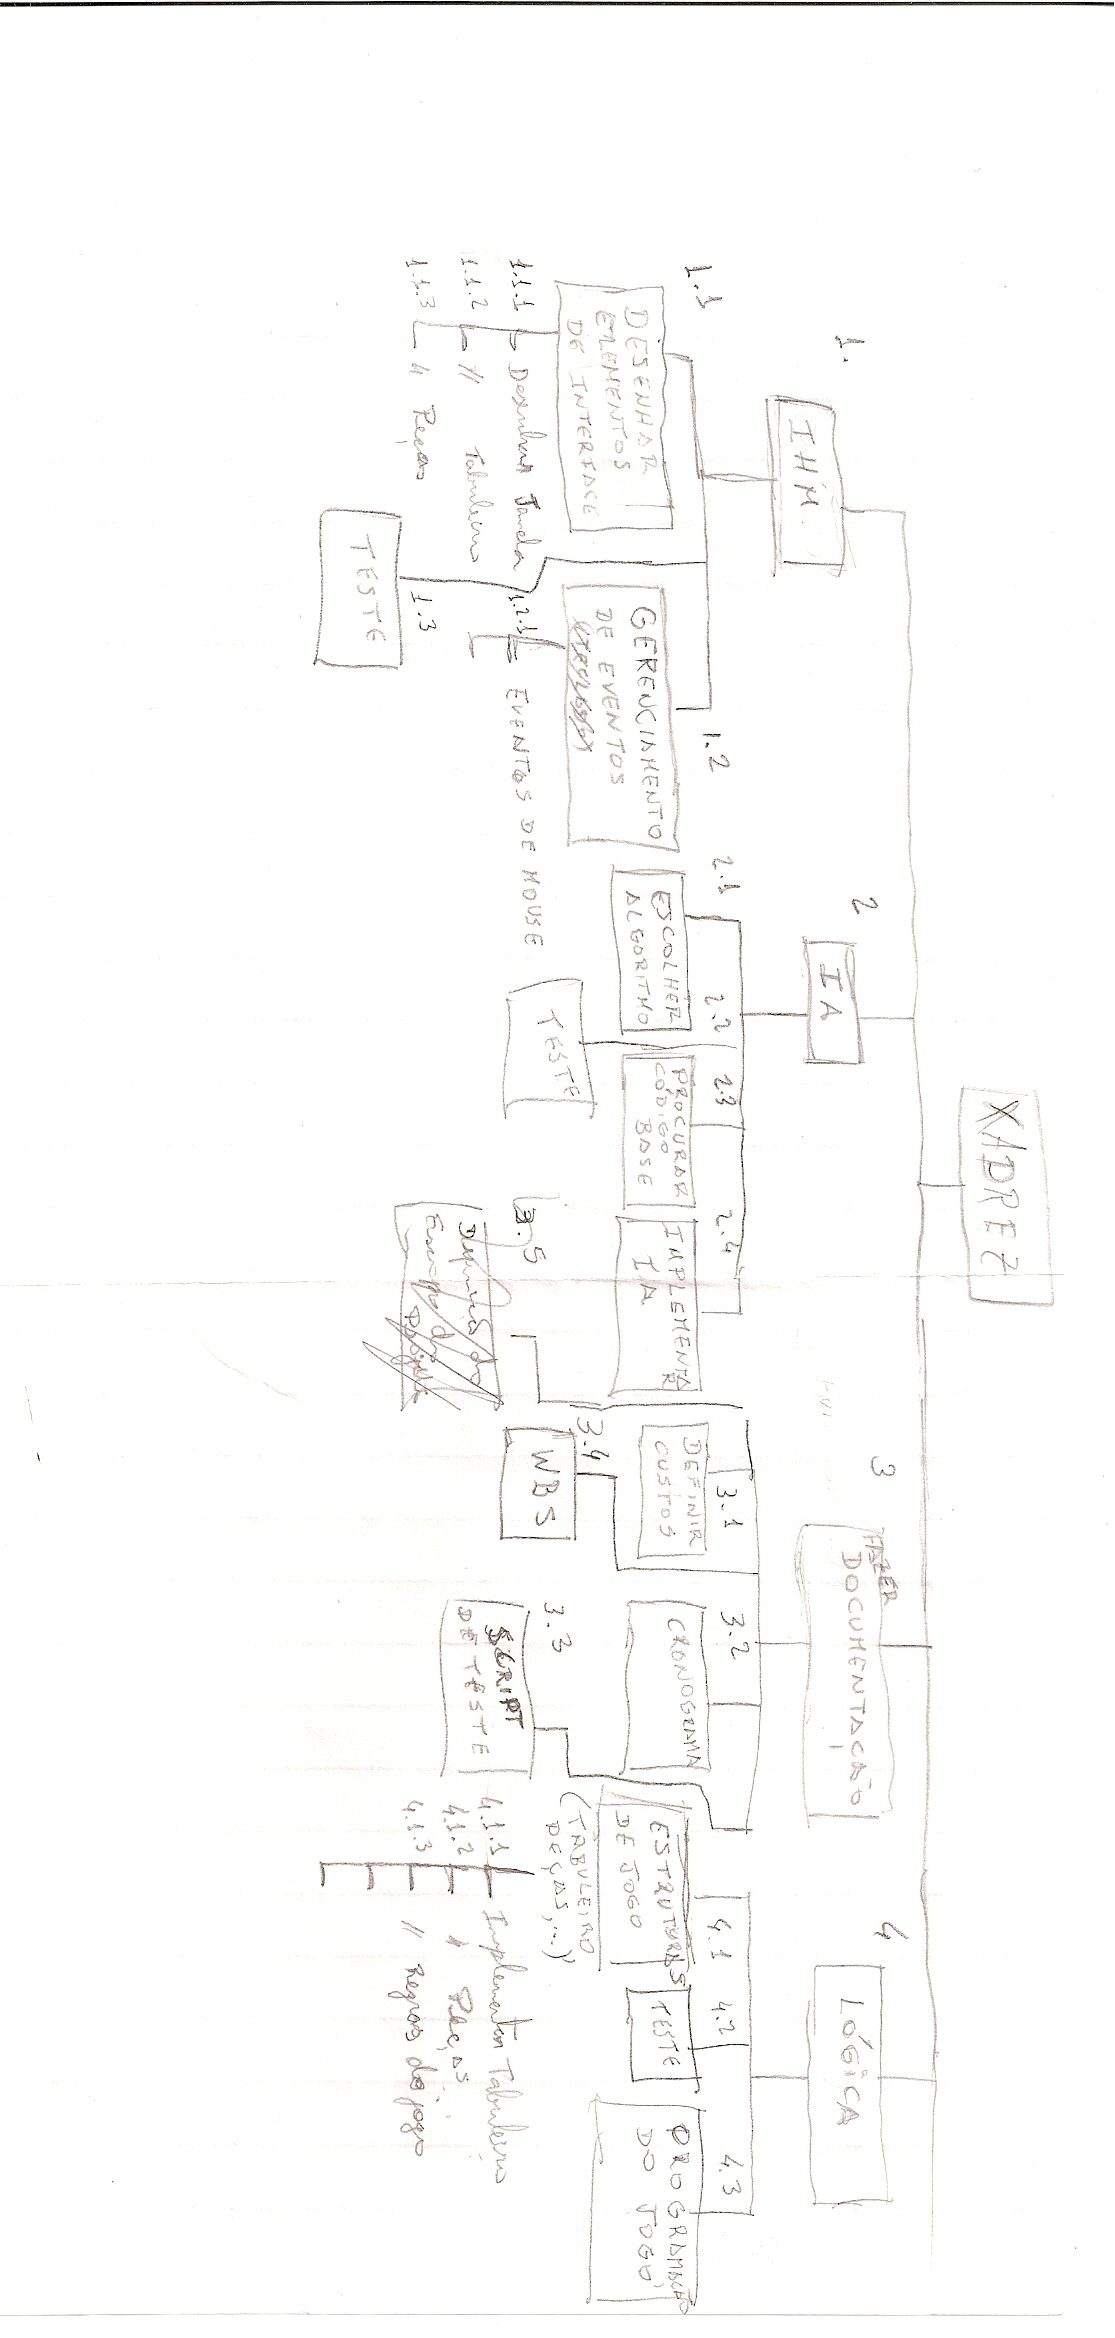 XADREZ
1.
IHM.
1.1
DESENHAR
ELEMENTOS
DE INTERFACE
1.1.1 Desenhar Janela
1.1.2 〃 Tabuleiro
1.1.3 〃 Peças
1.2
GERENCIAMENTO
DE EVENTOS
1.2.1 EVENTOS DE MOUSE
1.3
TESTE
2
IA
2.1
ESCOLHER
ALGORITMO
2.2
TESTE
2.3
PROCURAR
CÓDIGO
BASE
2.4
IMPLEMENTA
R
IA
3
FAZER
DOCUMENTAÇÃO
3.1
DEFINIR
CUSTOS
3.2
CRONOGRAMA
3.3
SCRIPT
DE TESTE
3.4
WBS
3.5
4
LÓGICA
4.1
ESTRUTURAS
DE JOGO
(TABULEIRO
PEÇAS,...)
4.1.1 Implementar Tabuleiro
4.1.2 〃 Peças
4.1.3 〃 regras do jogo
4.2
TESTE
4.3
DO JOGO